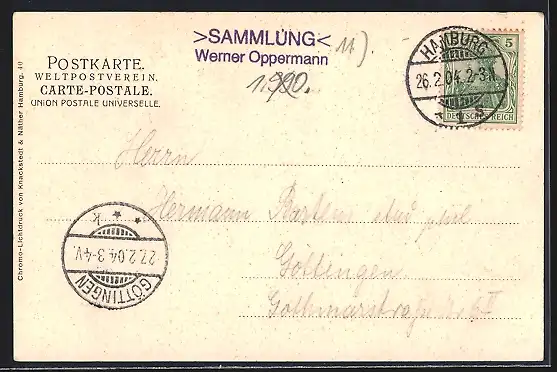 >SAMMLUNG<
Werner Oppermann
11)
1.990.
POSTKARTE.
WELTPOSTVEREIN.
CARTE-POSTALE.
UNION POSTALE UNIVERSELLE.
Chromo-Lichtdruck von Knackstedt & Näther Hamburg.
HAMBURG
26.2.04.2-3.N.
5
DEUTSCHES REICH
Herrn
Hermann
Göttingen
27.2.04.3-4.V.
* * k
GÖTTINGEN